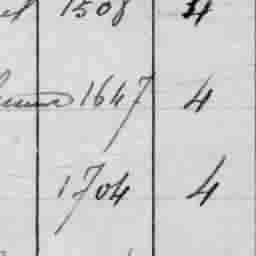 1508 4
1647 4
1704 4